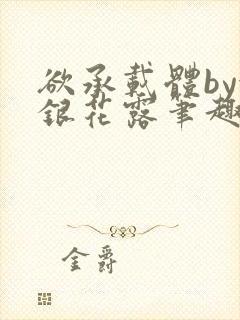 欲承載體by
銀花露筆趣
金爵